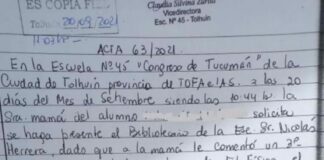 ES COPIA FIEL
20/09/2021
Claudia Silvina Zurita
Vicedirectora
Esc. N° 45 - Tolhuin
ACTA 63/2021
En la Escuela N° 45 "Congreso de Tucumán" de la
Ciudad de Tolhuin provincia de TDFAeIAS. a los 20
días del Mes de Setiembre siendo las 10:44 hs la
Sra. mamá del alumno solicita
se haga presente el Bibliotecario de la Esc. Sr. Nicolás
Herrera, dado que a la mamá le comentó un 3°